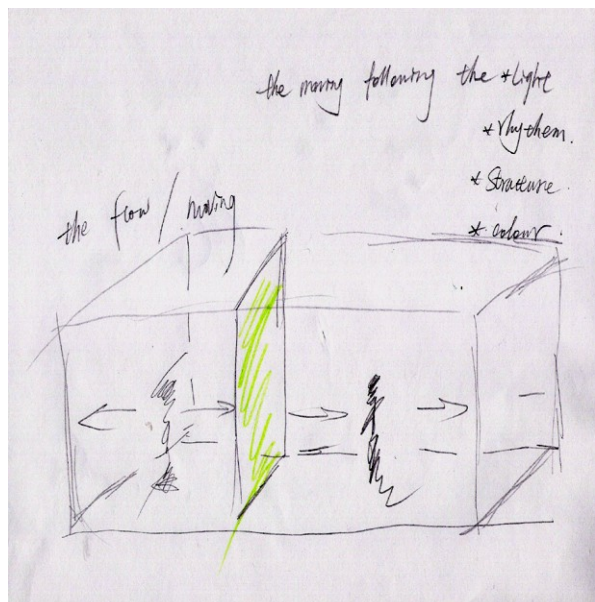 the moving following the *light
*rhythem.
*Structure.
*colour.
the flow / moving